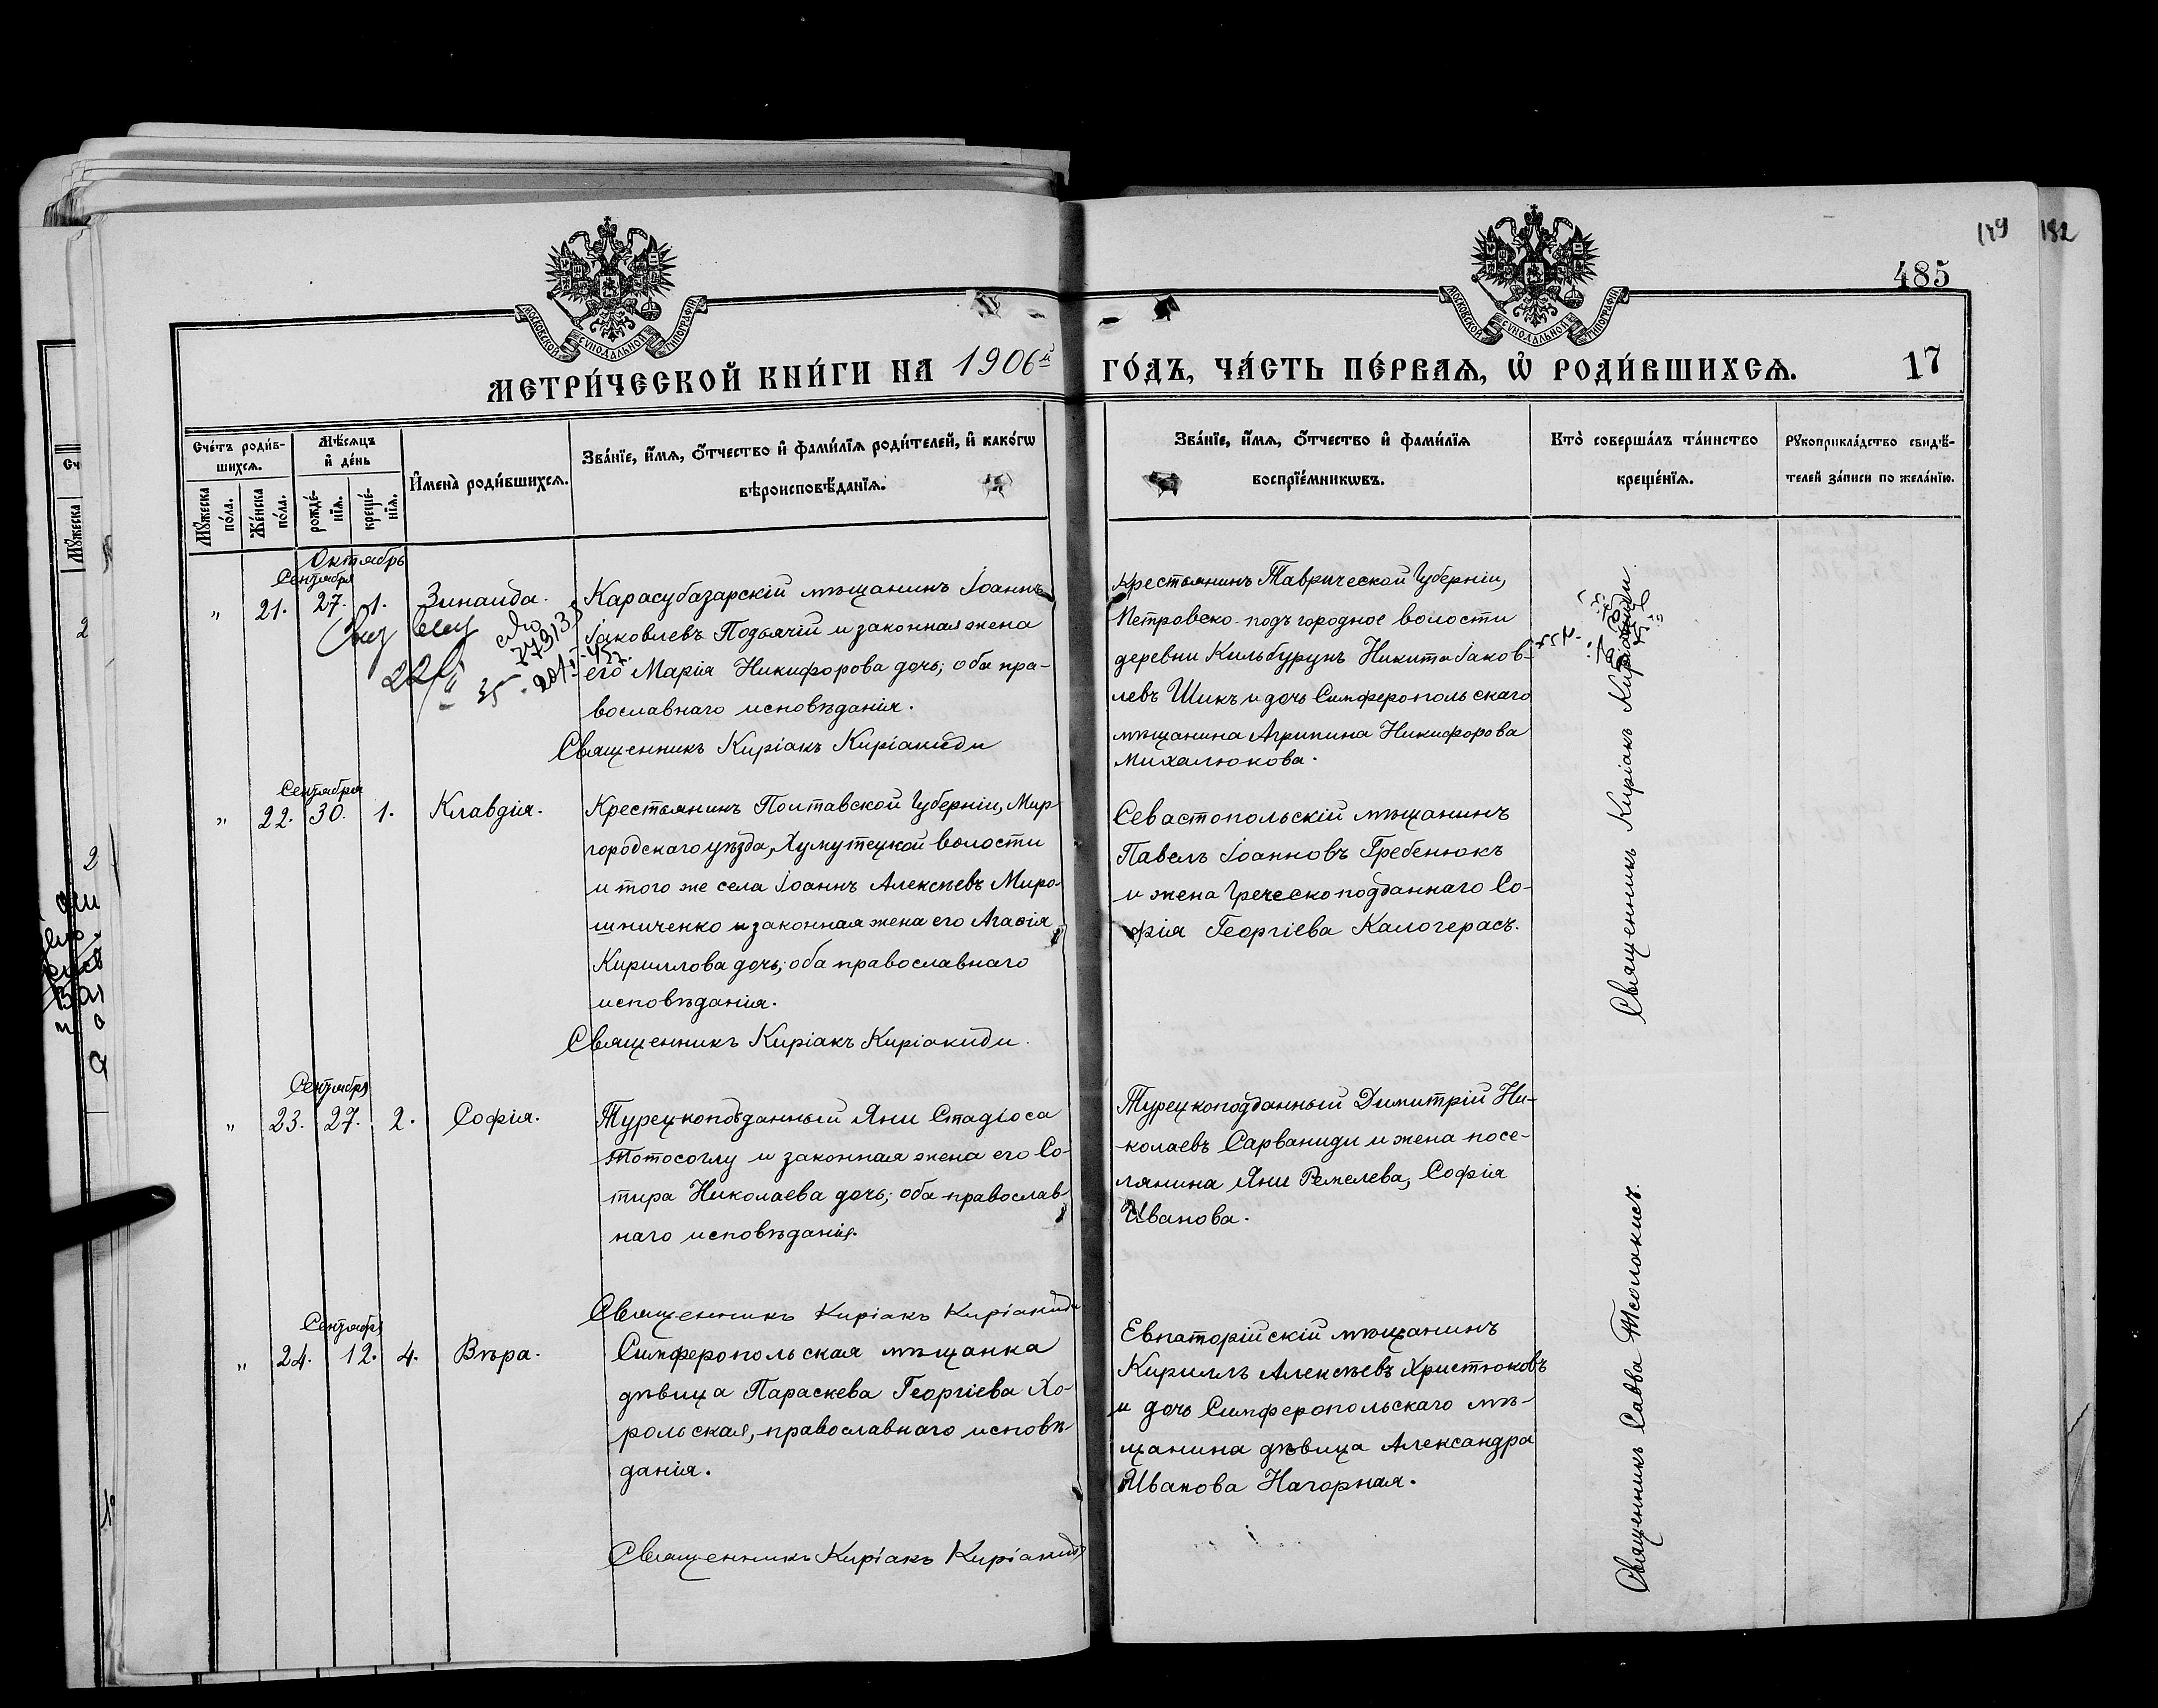 179 182
485
МОСКОВСКОЙ СѴНОДАЛЬНОЙ ТИПОГРАФІИ
МОСКОВСКОЙ СѴНОДАЛЬНОЙ ТИПОГРАФІИ
МЕТРИ́ЧЕСКОЙ КНИ́ГИ НА 1906й ГО́ДЪ, ЧА́СТЬ ПЕ́РВАѦ, Ѽ РОДИ́ВШИХСѦ. 17
Сче́тъ роди́в-
шихсѧ.
Мꙋ́жеска по́ла.
Же́нска по́ла.
Мѣ́сѧцъ
и҆ де́нь
рожде́-
нїѧ.
креще́-
нїѧ.
И҆мена̀ роди́вшихсѧ.
Зва́нїе, и҆́мѧ, ѻ҆́тчество и҆ фами́лїѧ роди́телей, и҆ како́гѡ
вѣроисповѣ́данїѧ.
Зва́нїе, и҆́мѧ, ѻ҆́тчество и҆ фами́лїѧ
воспрїе́мникѡвъ.
Кто̀ соверша́лъ та́инство
креще́нїѧ.
Рꙋкоприкла́дство свидѣ́-
телей за́писи по жела́нїю.
Октябрь
Сентября
" 21. 27. 1. Зинаида.
Карасубазарскій мѣщанинъ Іоаннъ
Іаковлевъ Подьячій и законная жена
его Марія Никифорова дочь; оба пра-
вославнаго исповѣданія.
Священникъ Киріакъ Киріакиди
Крестьянинъ Таврической Губерніи,
Петровско-подъ городное волости
деревни Кильбурунъ Никита Іаков-
левъ Шикъ и дочь Симферопольскаго
мѣщанина Агрипина Никифорова
Михалюкова.
Сентября
" 22. 30. 1. Клавдія.
Крестьянинъ Полтавской Губерніи, Мир-
городскаго уѣзда, Хумутецкой волости
и того же села Іоаннъ Алексѣевъ Миро-
шниченко и законная жена его Агафія
Кириллова дочь; оба православнаго
исповѣданія.
Священникъ Киріакъ Киріакиди.
Севастопольскій мѣщанинъ
Павелъ Іоанновъ Гребенюкъ
и жена Греческоподданнаго Со-
фія Георгіева Калогерасъ.
Священникъ Киріакъ Киріакиди.
Сентября
" 23. 27. 2. Софія.
Турецкоподданный Яни Стадіоса
Тотосоглу и законная жена его Со-
тира Николаева дочь; оба православ-
наго исповѣданія.
Священникъ Киріакъ Киріакиди
Турецкоподданный Димитрій Ни-
колаевъ Сарваниди и жена посе-
лянина Яни Ремелева, Софія
Иванова.
Сентября
" 24. 12. 4. Вѣра.
Симферопольская мѣщанка
дѣвица Параскева Георгіева Хо-
рольская, православнаго исповѣ-
данія.
Священникъ Киріакъ Киріакиди
Евпаторійскій мѣщанинъ
Кириллъ Алексѣевъ Христюковъ
и дочь Симферопольскаго мѣ-
щанина дѣвица Александра
Иванова Нагорная.
Священникъ Савва